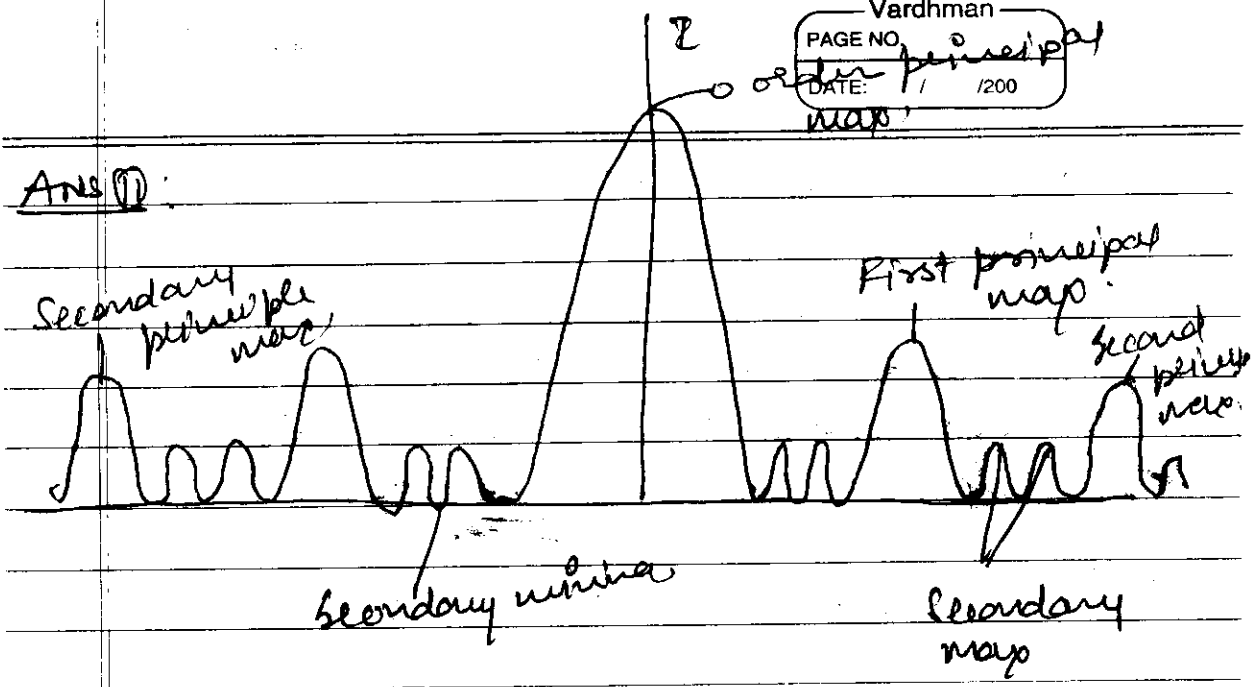 Vardhman
PAGE NO.
DATE: / /200
I
0 order principal
max.
Ans ①:
Secondary
principle
max.
First principal
max.
Second
princip
max.
Secondary minima
Secondary
max